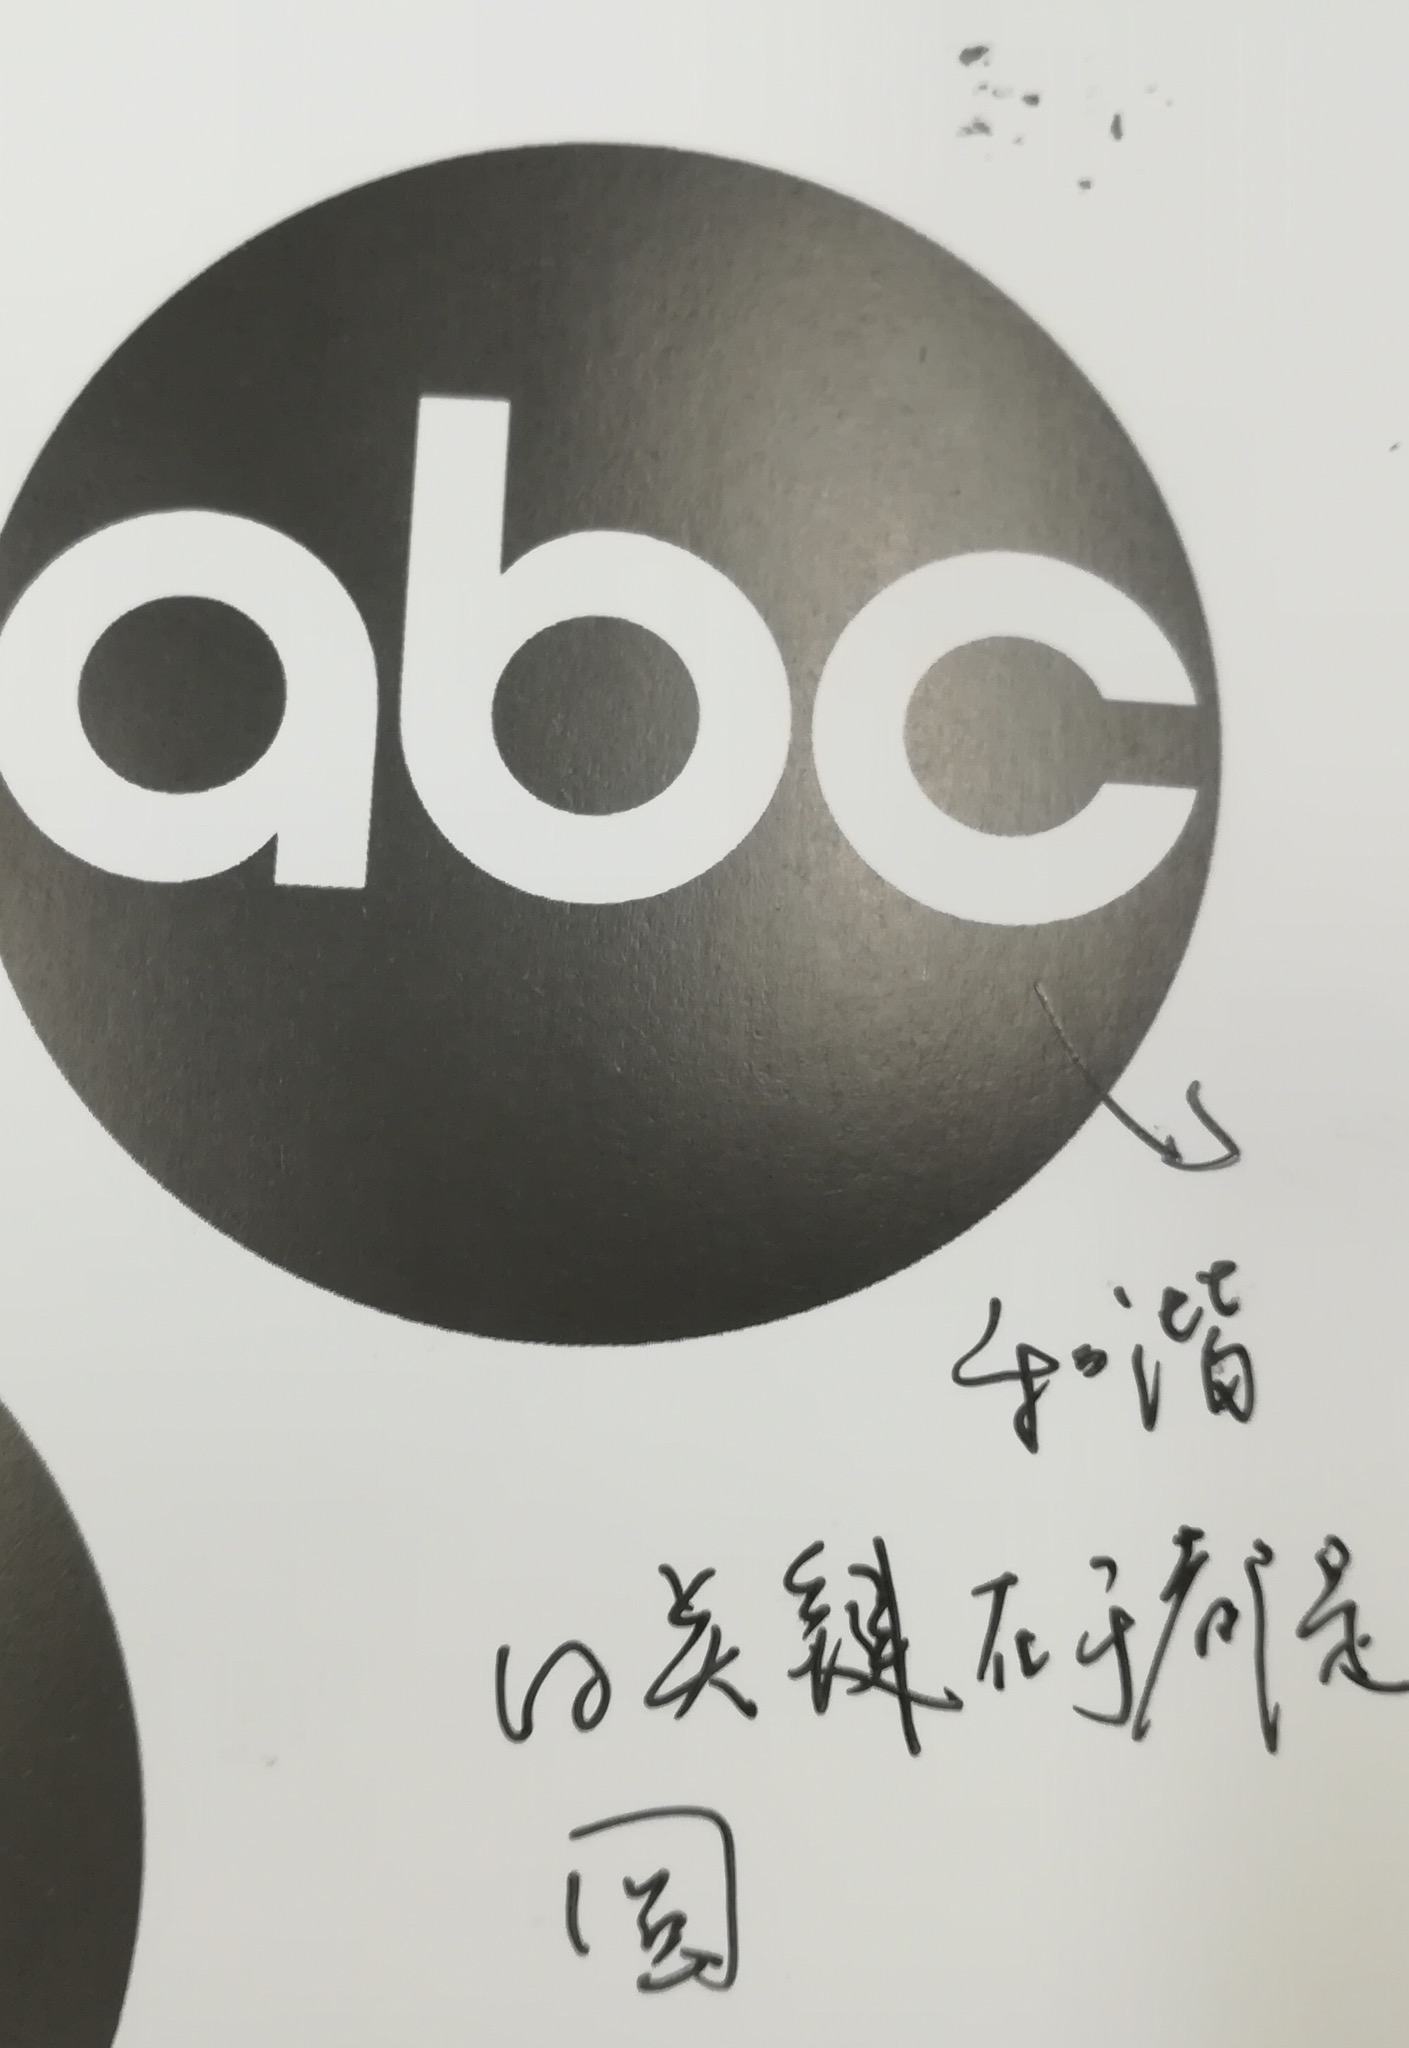 abc
和谐
的关键在于都是
圆